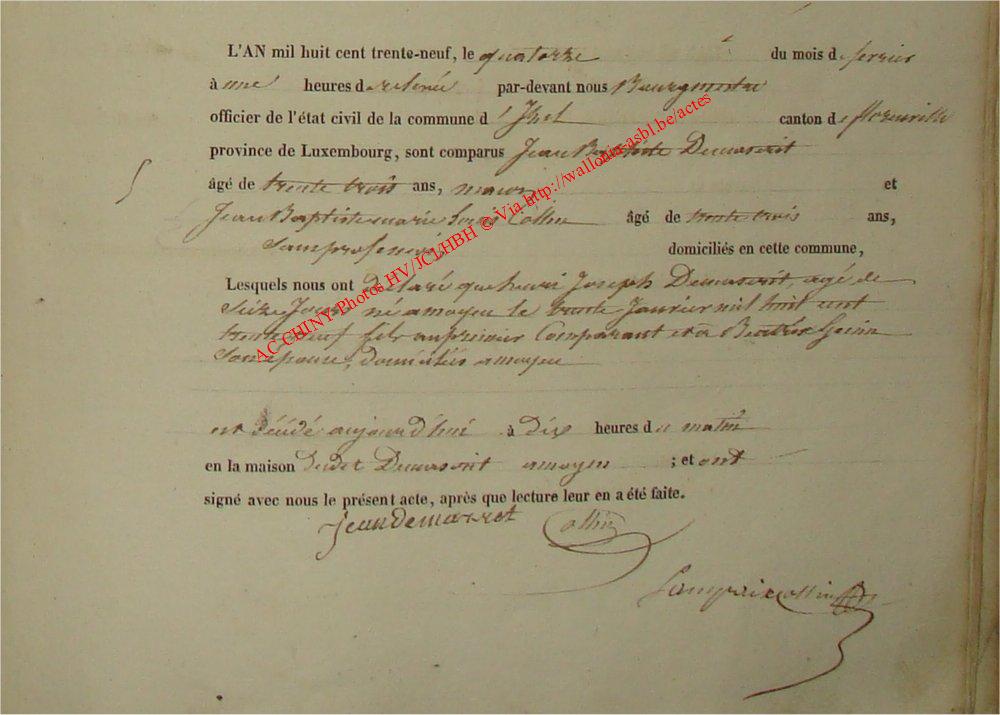 L'AN mil huit cent trente-neuf, le quatorze du mois de fevrier
à une heures de relevée par-devant nous Bourgmestre
officier de l'état civil de la commune d'Izel canton de florenville
province de Luxembourg, sont comparus Jean Baptiste
âgé de trente trois ans, et
Jean Baptiste marie Louis Collin âgé de trente trois ans,
Sans profession domiciliés en cette commune,
Lesquels nous ont déclaré que henri Joseph agé de
Seize Jours né a moyen le trente Janvier mil huit cent
trente neuf fils au premier Comparant et a
Son epouse, domiciliés a moyen
est décédé aujourd'hui à dix heures du matin
en la maison dudet a moyen ; et ont
signé avec nous le présent acte, après que lecture leur en a été faite.
jean demarret Collin
Collin
AC CHINY-Photos HV/JCLHBH © Via http://wallonia-asbl.be/actes